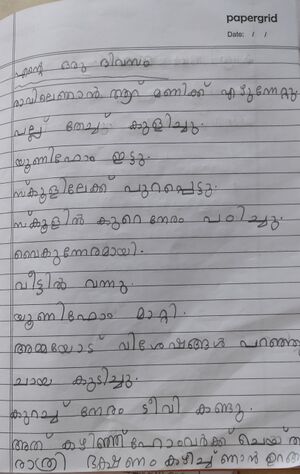 papergrid
Date: / /
എന്റെ ഒരു ദിവസം
രാവിലെ ഞാൻ ആറ് മണിക്ക് എഴുന്നേറ്റു
പല്ല് തേച്ച് കുളിച്ചു.
യൂണിഫോം ഇട്ടു.
സ്കൂളിലേക്ക് പുറപ്പെട്ടു.
സ്കൂളിൽ കുറെ നേരം പഠിച്ചു.
വൈകുന്നേരമായി.
വീട്ടിൽ വന്നു.
യൂണിഫോം മാറ്റി.
അമ്മയോട് വിശേഷങ്ങൾ പറഞ്ഞു
ചായ കുടിച്ചു.
കുറച്ച് നേരം ടീവി കണ്ടു.
അത് കഴിഞ്ഞ് ഹോംവർക്ക് ചെയ്ത്
രാത്രി ഭക്ഷണം കഴിച്ച് ഞാൻ ഉറങ്